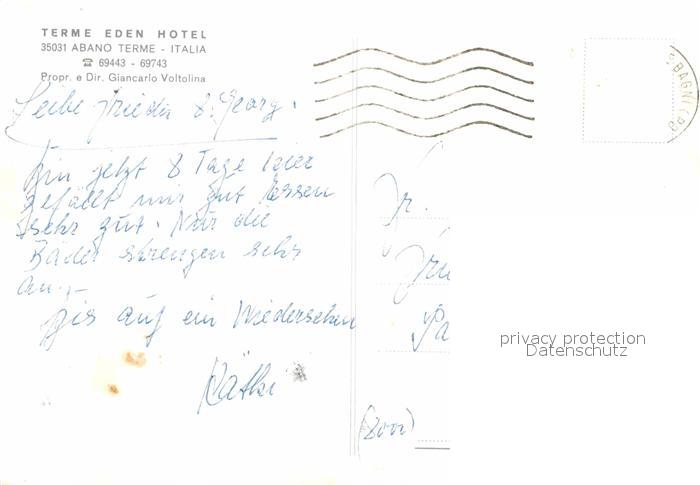 TERME EDEN HOTEL
35031 ABANO TERME - ITALIA
☎ 69443 - 69743
Propr. e Dir. Giancarlo Voltolina
Liebe Frieda & Georg.
Bin jetzt 8 Tage hier
gefällt mir gut Essen
sehr gut. Nur die
Bäder strengen sehr
an.-
Bis auf ein Wiedersehen
Käthi
Fr.
privacy protection
Datenschutz